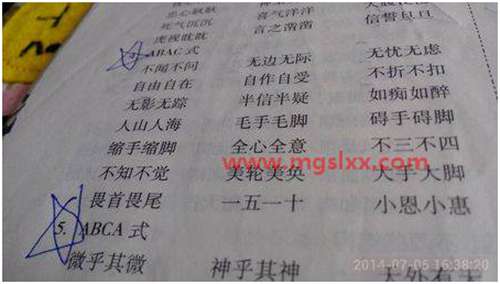 死气沉沉 喜气洋洋
虎视眈眈 言之凿凿 信誓旦旦
ABAC 式
不闻不问 无边无际 无忧无虑
自由自在 自作自受 不折不扣
无影无踪 半信半疑 如痴如醉
人山人海 毛手毛脚 碍手碍脚
缩手缩脚 全心全意 不三不四
www.mgslxx.com
不知不觉 美轮美奂 大手大脚
畏首畏尾 一五一十 小恩小惠
5. ABCA 式
微乎其微 神乎其神 天外有天
2014-07-05 16:38:20